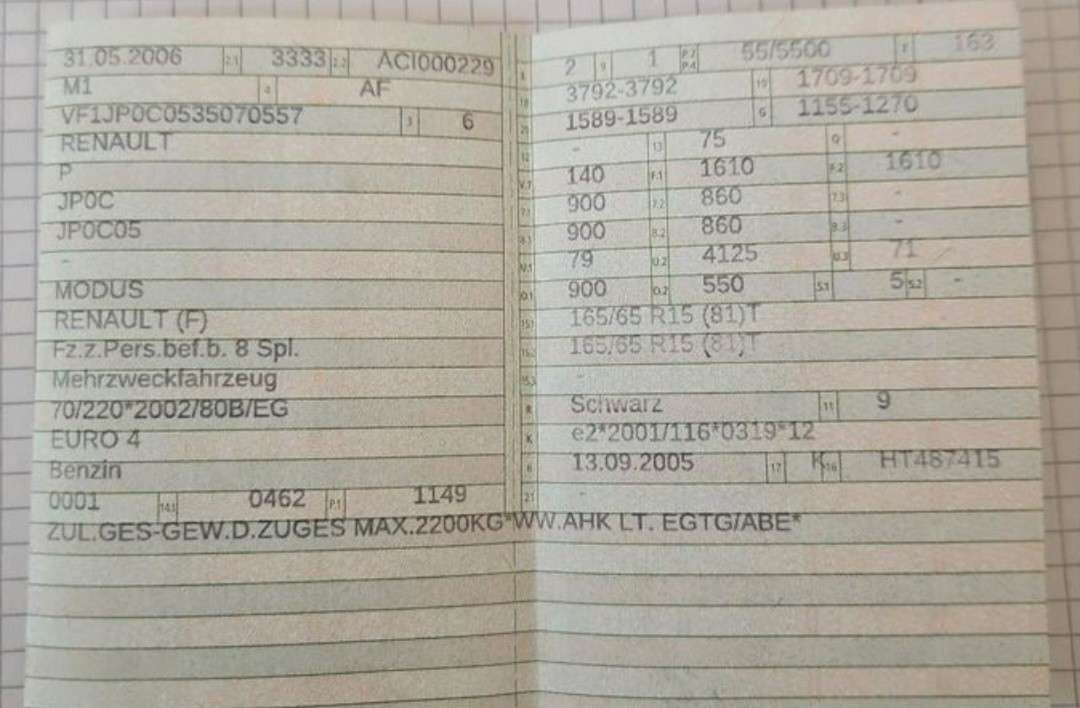 31.05.2006 2.1 3333 2.2 ACI000229
M1 4 AF
VF1JP0C0535070557 3 6
RENAULT
P
JP0C
JP0C05
-
MODUS
RENAULT (F)
Fz.z.Pers.bef.b. 8 Spl.
Mehrzweckfahrzeug
70/220*2002/80B/EG
EURO 4
Benzin
0001 14.1 0462 P.1 1149
L 2 9 1 P.2 P.4 55/5500 T 163
18 3792-3792 19 1709-1709
20 1589-1589 G 1155-1270
12 - 13 75 Q -
V.7 140 F.1 1610 F.2 1610
7.1 900 7.2 860 7.3 -
8.1 900 8.2 860 8.3 -
U.1 79 U.2 4125 U.3 71
O.1 900 O.2 550 S.1 5 S.2 -
15.1 165/65 R15 (81)T
15.2 165/65 R15 (81)T
15.3 -
R Schwarz 11 9
K e2*2001/116*0319*12
6 13.09.2005 17 K 16 HT487415
21
ZUL.GES-GEW.D.ZUGES MAX.2200KG*WW.AHK LT. EGTG/ABE*